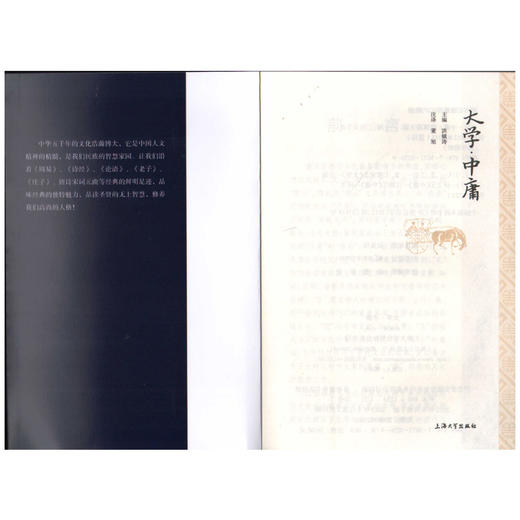 中华五千年的文化浩瀚博大，它是中国人文
精神的精髓，是我们民族的智慧家园。让我们沿
着《周易》、《诗经》、《论语》、《老子》、
《庄子》、唐诗宋词元曲等经典的鲜明足迹，品
味经典的独特魅力，品读圣贤的无上智慧，修养
我们高尚的人格！
大学·中庸
主编 洪镇涛
注译 董旭
上海大学出版社